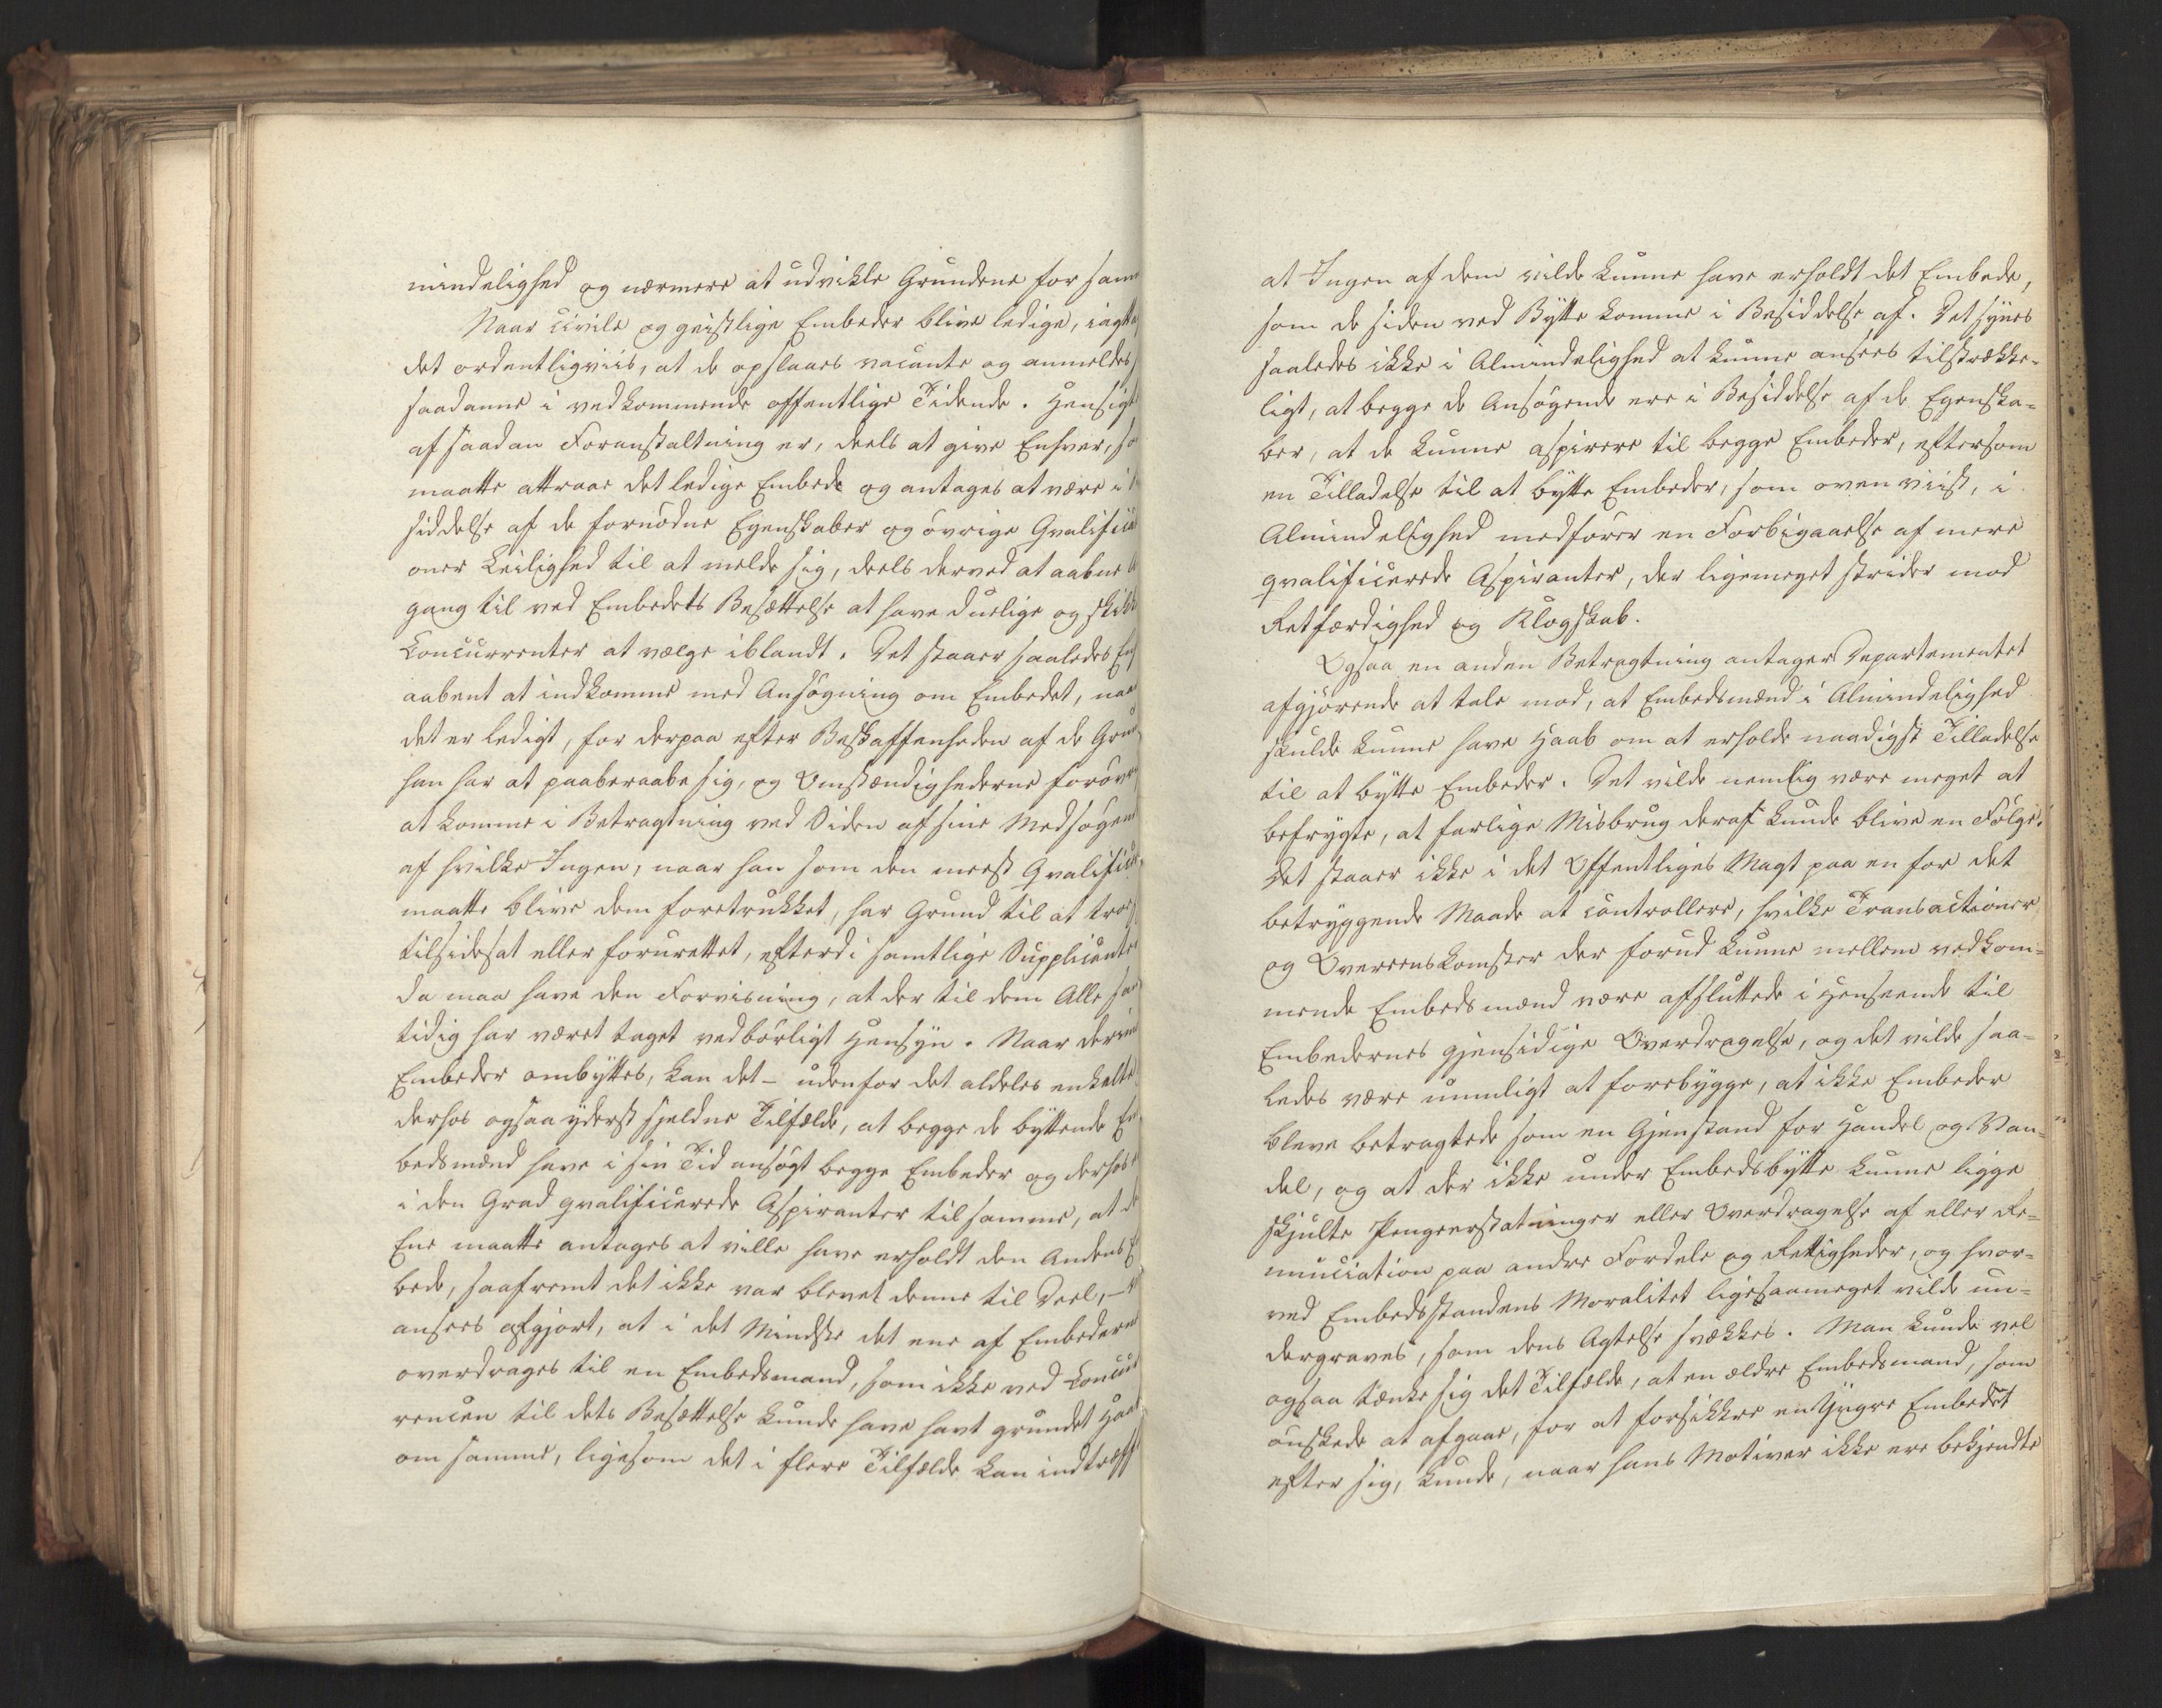 mindelighed og nærmere at udvikle Grundene for samm
Naar civile og geistlige Embeder blive ledige, iagtta
det ordentligviis, at de opslaaes vacante og anmeldes
saadanne i vedkommende offentlige Tidende. Hensigt
af saadan Foranstaltning er, deels at give Enhver, so
maatte attraae det ledige Embede og antages at være i
siddelse af de fornødne Egenskaber og øvrige Qvalifica
oner Leilighed til at melde sig, deels derved at aabne
gang til ved Embedets Besættelse at have duelige og skikk
Concurrenter at vælge iblandt. Det staaer saaledes Enh
aabent at indkomme med Ansøgning om Embedet, naa
det er ledigt, for derpaa efter Beskaffenheden af de Grun
han har at paaberaabe sig, og Omstændighederne forøvr
at komme i Betragtning ved Siden af sine Medsøgend
af hvilke Ingen, naar han som den meest Qvalifice
maatte blive dem foretrukket, har Grund til at troe
tilsidesat eller forurettet, efterdi samtlige Supplicanter
da maa have den Forvisning, at der til dem Alle sam
tidig har været taget vedbørligt Hensyn. Naar derim
Embeder ombyttes, kan det – udenfor det aldeles enkelte
derhos ogsaa yderst sjeldne Tilfælde, at begge de byttende Em
bedsmænd have i sin Tid ansøgt begge Embeder og derhos
i den Grad qvalificerede Aspiranter til samme, at de
Ene maatte antages at ville have erholdt den Andens E
bede, saafremt det ikke var blevet denne til Deel, –
ansees afgjort, at i det Mindste det ene af Embederne
overdrages til en Embedsmand, som ikke ved Concur
rencen til dets Besættelse kunde have havt grundet Haab
om samme, ligesom det i flere Tilfælde kan indtræffe
at Ingen af dem vilde kunne have erholdt det Embede,
som de siden ved Bytte komme i Besiddelse af. Det synes
saaledes ikke i Almindelighed at kunne ansees tilstrække-
ligt, at begge de Ansøgende ere i Besiddelse af de Egenska-
ber, at de kunne aspirere til begge Embeder, eftersom
en Tilladelse til at bytte Embeder, som oven viist, i
Almindelighed medfører en Forbigaaelse af mere
qvalificerede Aspiranter, der ligemeget strider mod
Retfærdighed og Klogskab.
Ogsaa en anden Betragtning antager Departementet
afgjørende at tale mod, at Embedsmænd i Almindelighed
skulde kunne have Haab om at erholde naadigst Tilladelse
til at bytte Embeder. Det vilde nemlig være meget at
befrygte, at farlige Misbrug deraf kunde blive en Følge.
Det staaer ikke i det Offentliges Magt paa en for det
betryggende Maade at controllere, hvilke Transactioner
og Overeenskomster der forud kunne mellem vedkom-
mende Embedsmænd være afsluttede i Henseende til
Embedernes gjensidige Overdragelse, og det vilde saa-
ledes være umuligt at forebygge, at ikke Embeder
bleve betragtede som en Gjenstand for Handel og Van-
del, og at der ikke under Embedsbytte kunne ligge
skjulte Pengeerstatninger eller Overdragelse af eller Re-
nunciation paa andre Fordele og Rettigheder, og hvor-
ved Embedsstandens Moralitet ligesaameget vilde un-
dergraves, som dens Agtelse svækkes. Man kunde vel
ogsaa tænke sig det Tilfælde, at en ældre Embedsmand, som
ønskede at afgaae, for at forsikkre en Yngre Embedet
efter sig, kunde, naar hans Motiver ikke ere bekjendte